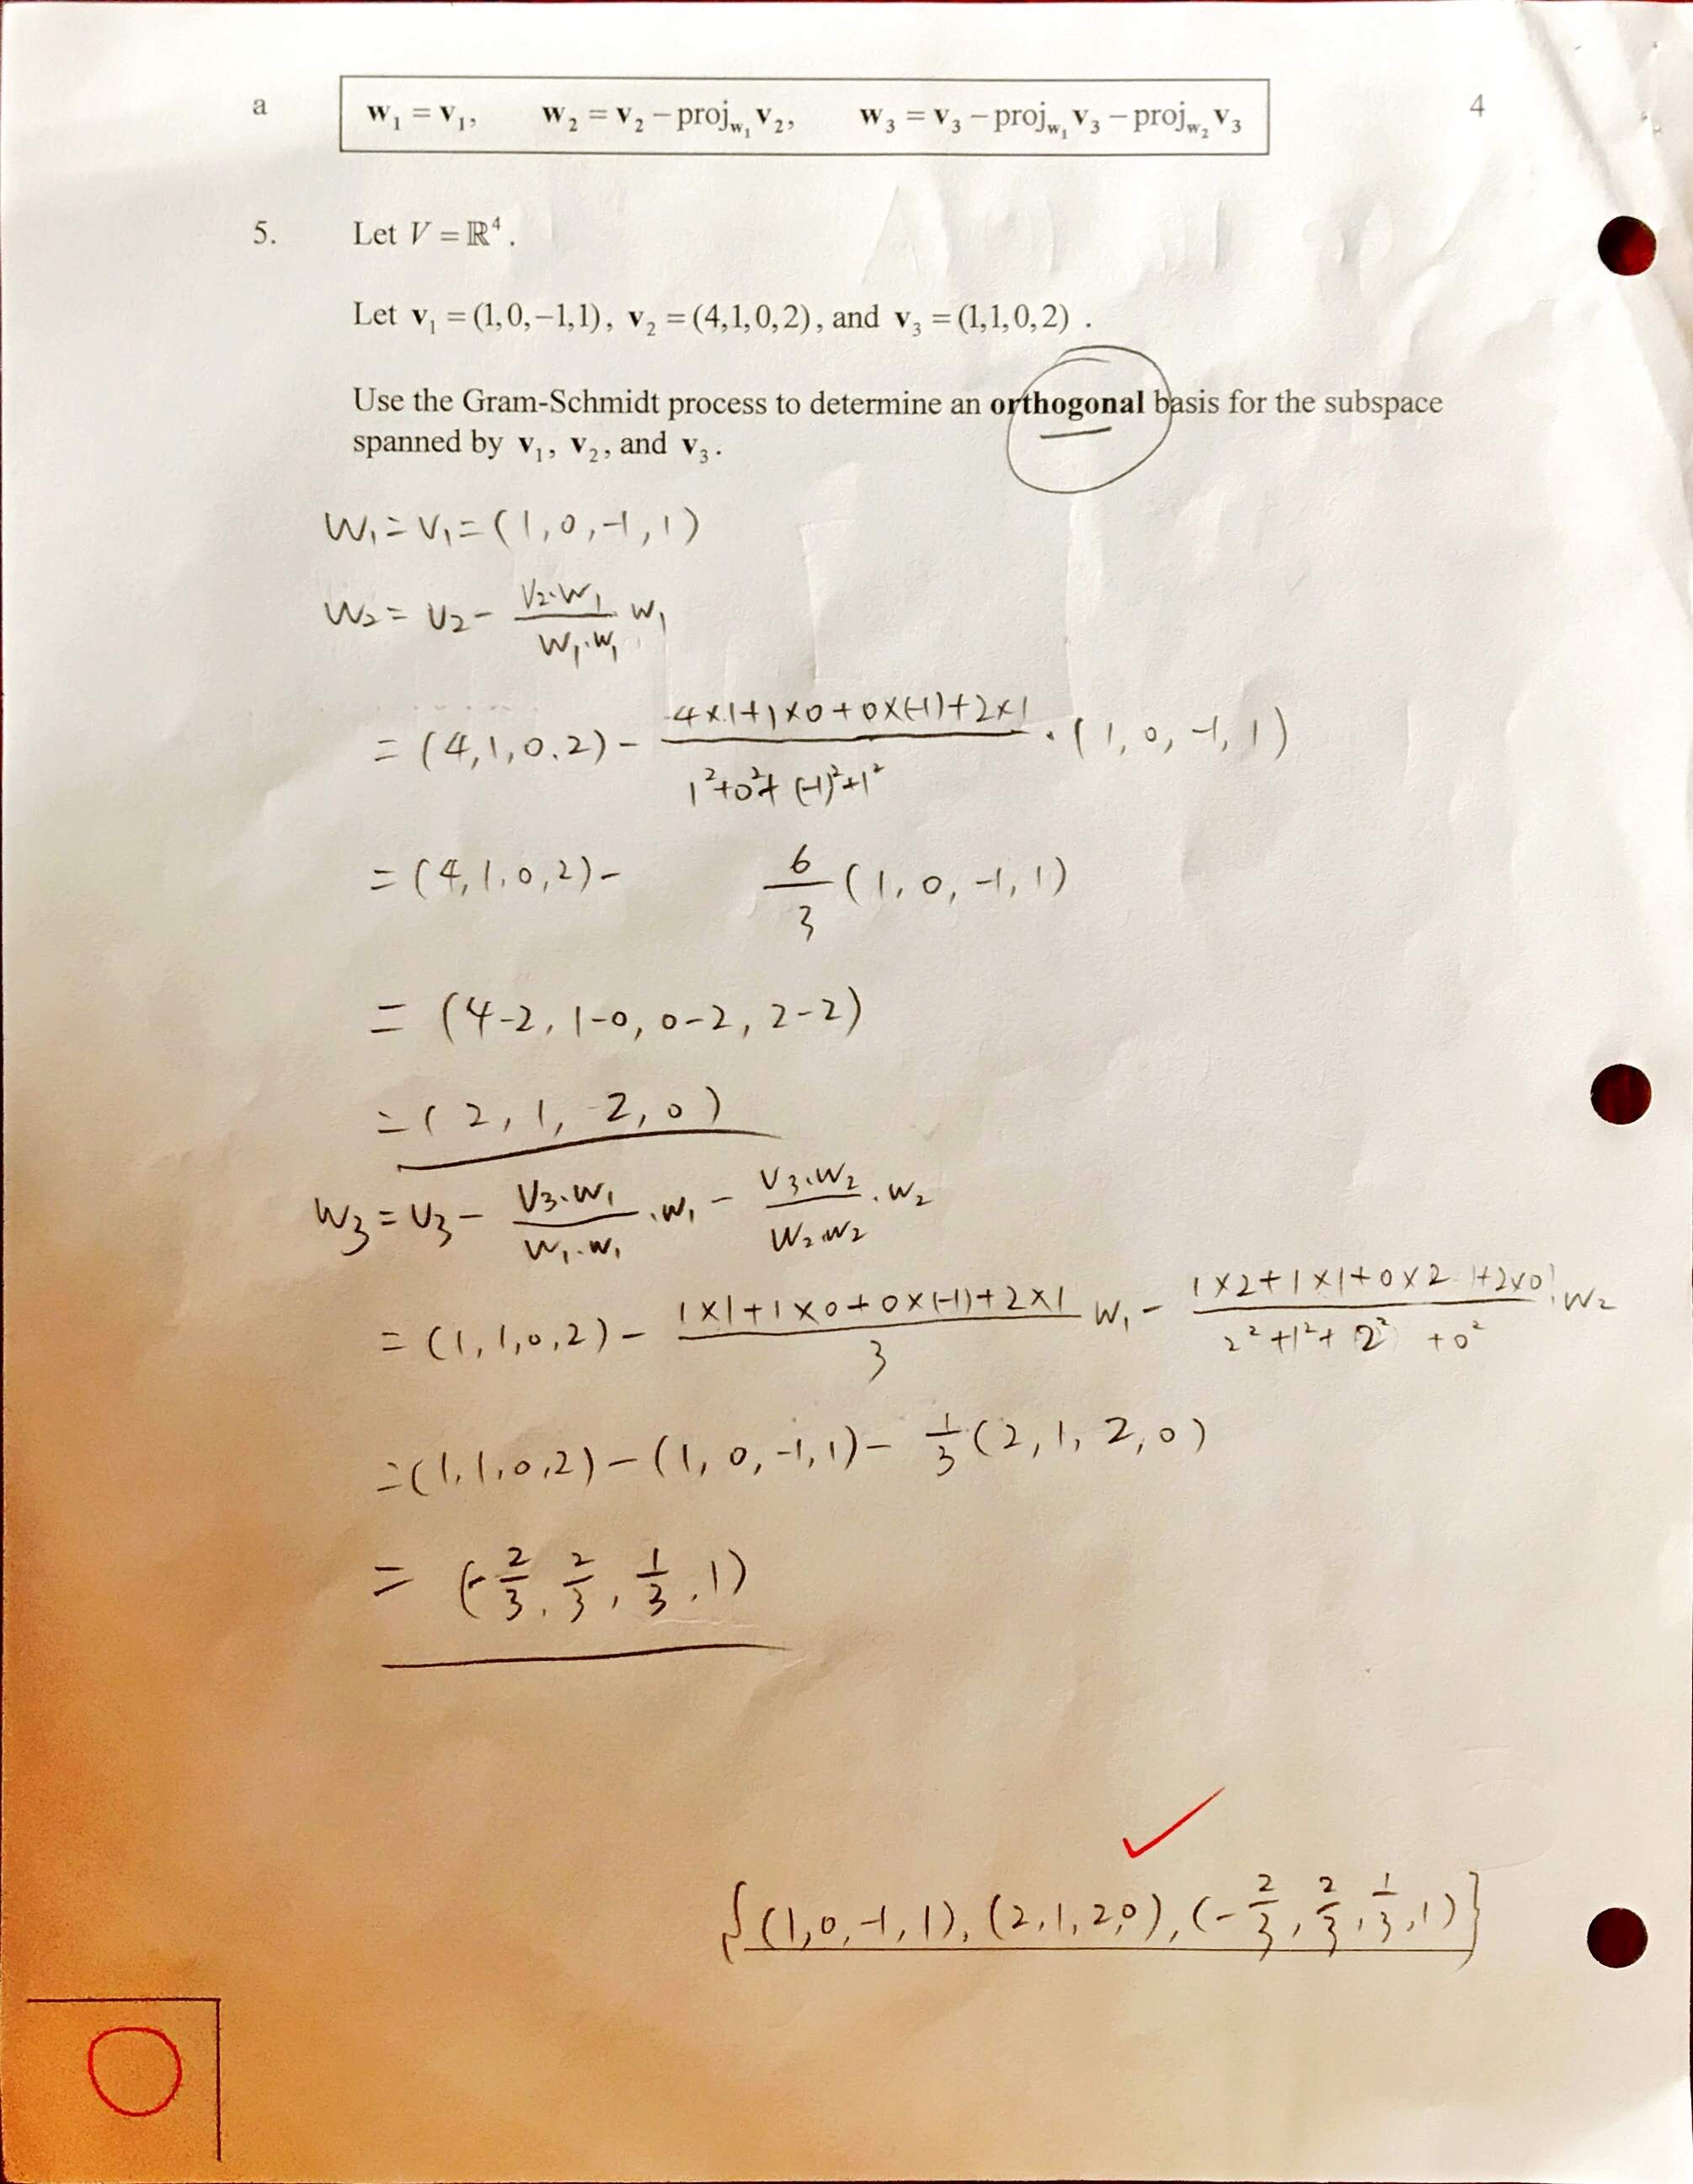 a w₁ = v₁, w₂ = v₂ − proj_w₁ v₂, w₃ = v₃ − proj_w₁ v₃ − proj_w₂ v₃ 4
5. Let V = ℝ⁴.
Let v₁ = (1,0,−1,1), v₂ = (4,1,0,2), and v₃ = (1,1,0,2) .
Use the Gram-Schmidt process to determine an orthogonal basis for the subspace
spanned by v₁, v₂, and v₃.
W₁ = V₁ = (1, 0, -1, 1)
W₂ = V₂ - (V₂·W₁)/(W₁·W₁) W₁
= (4,1,0.2) - (4×1+1×0+0×(-1)+2×1)/(1²+0²+(-1)²+1²) · (1, 0, -1, 1)
= (4,1,0,2) - 6/3 (1, 0, -1, 1)
= (4-2, 1-0, 0-2, 2-2)
= (2, 1, -2, 0)
W₃ = V₃ - (V₃·W₁)/(W₁·W₁) · W₁ - (V₃·W₂)/(W₂·W₂) · W₂
= (1,1,0,2) - (1×1+1×0+0×(-1)+2×1)/3 W₁ - (1×2+1×1+0×2+2×0)/(2²+1²+2²+0²) · W₂
= (1,1,0,2) - (1, 0, -1, 1) - 1/3 (2, 1, 2, 0)
= (-2/3, 2/3, 1/3, 1)
{(1,0,-1,1), (2,1,2,0), (-2/3, 2/3, 1/3, 1)}